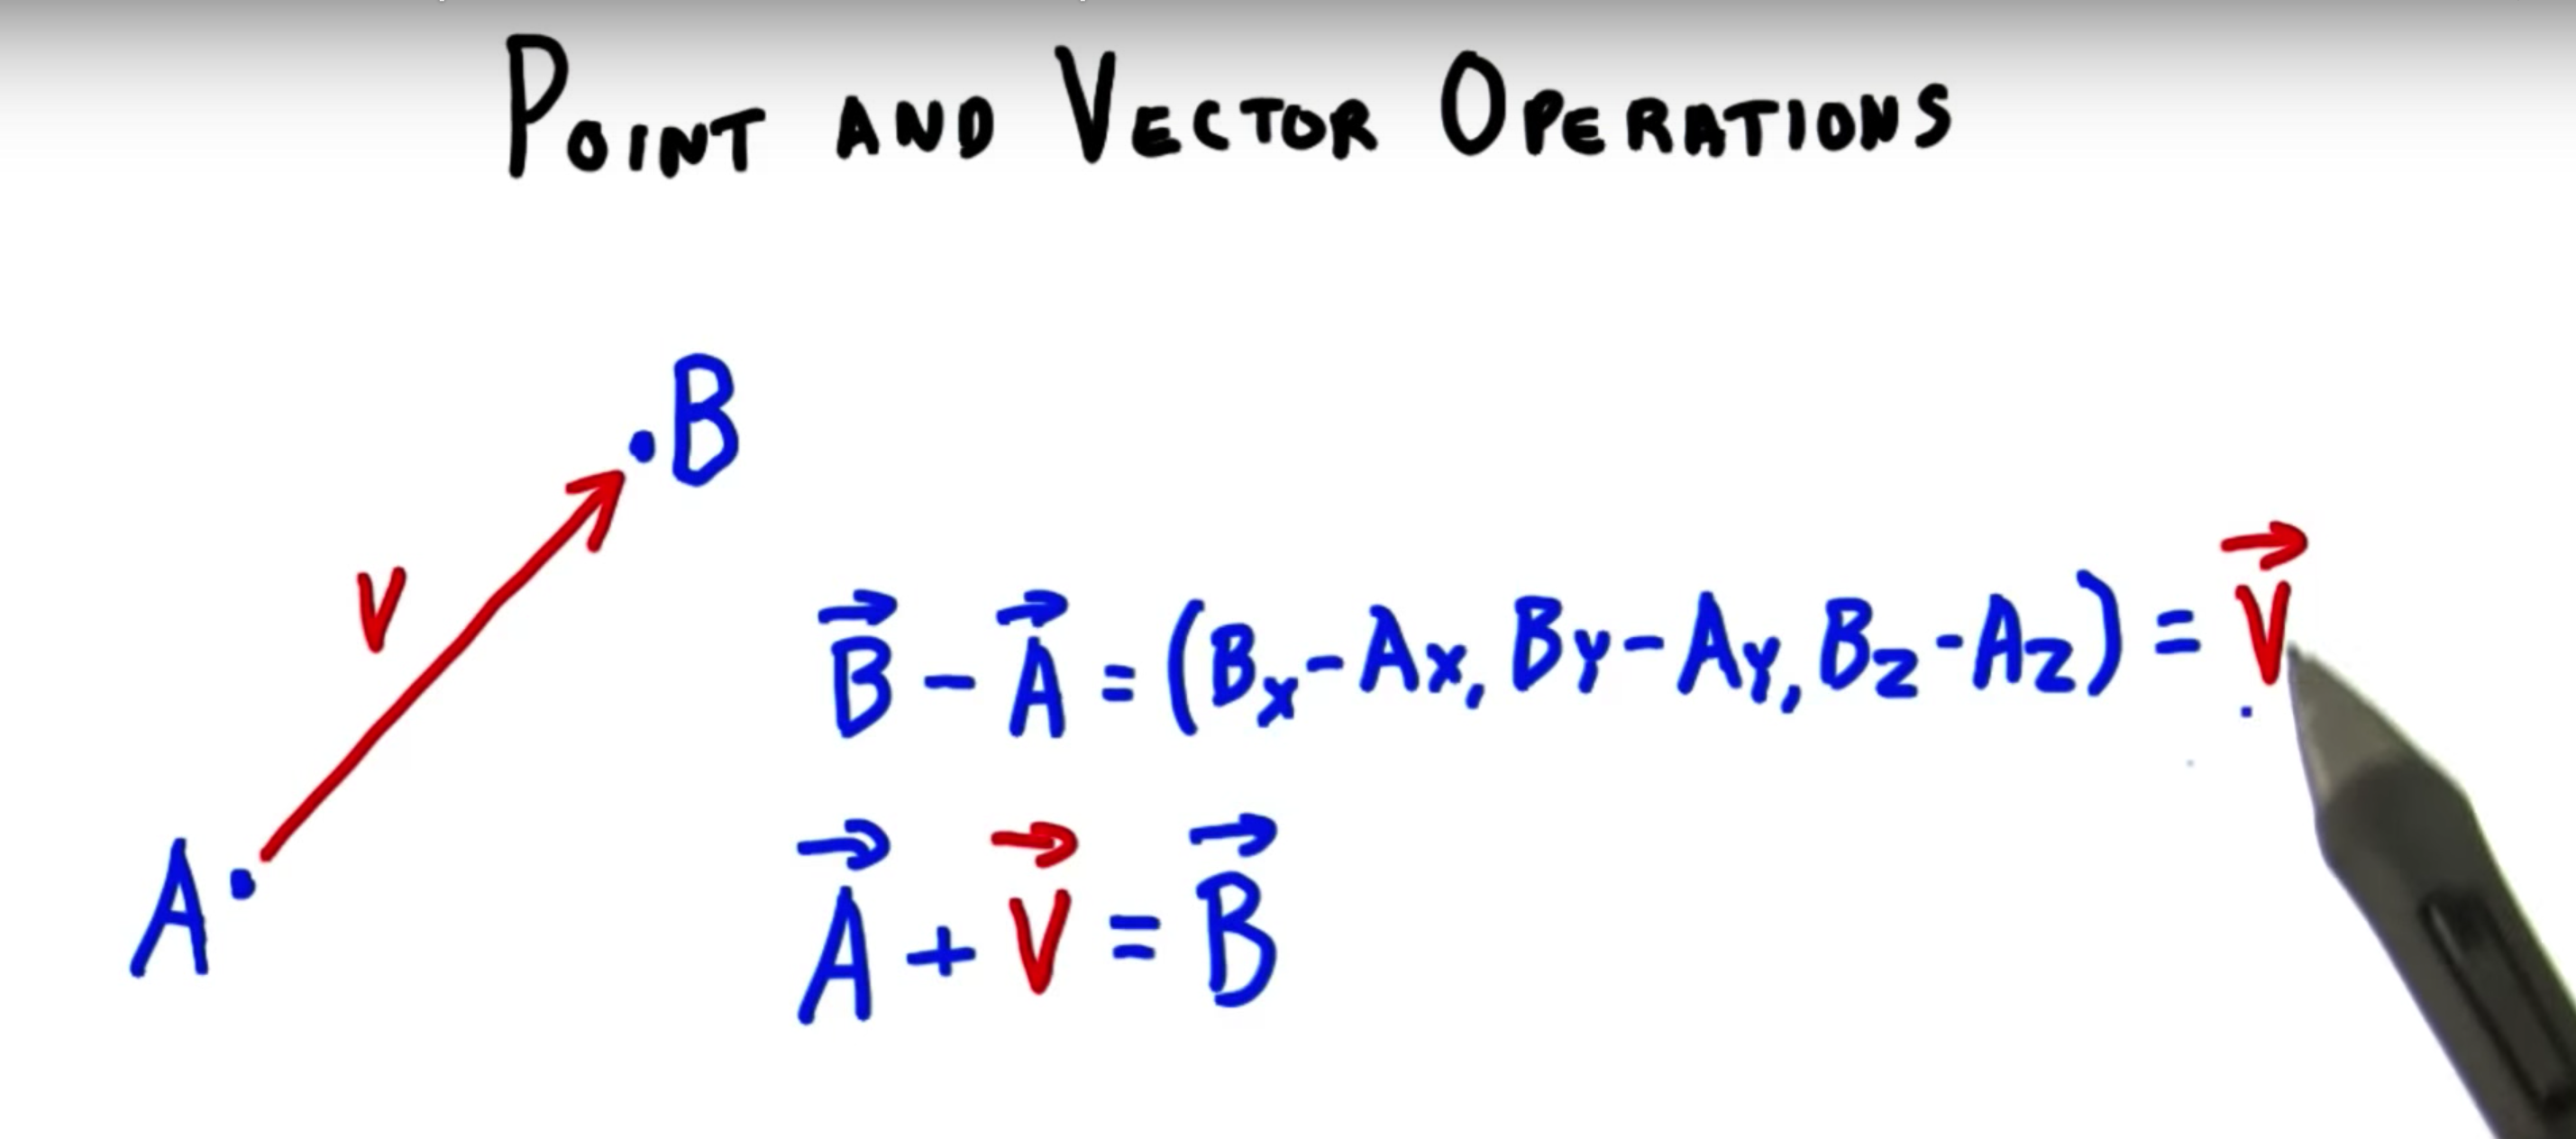 POINT AND VECTOR OPERATIONS
B
V
A
B⃗ - A⃗ = (Bx-Ax, By-Ay, Bz-Az) = V⃗
A⃗ + V⃗ = B⃗